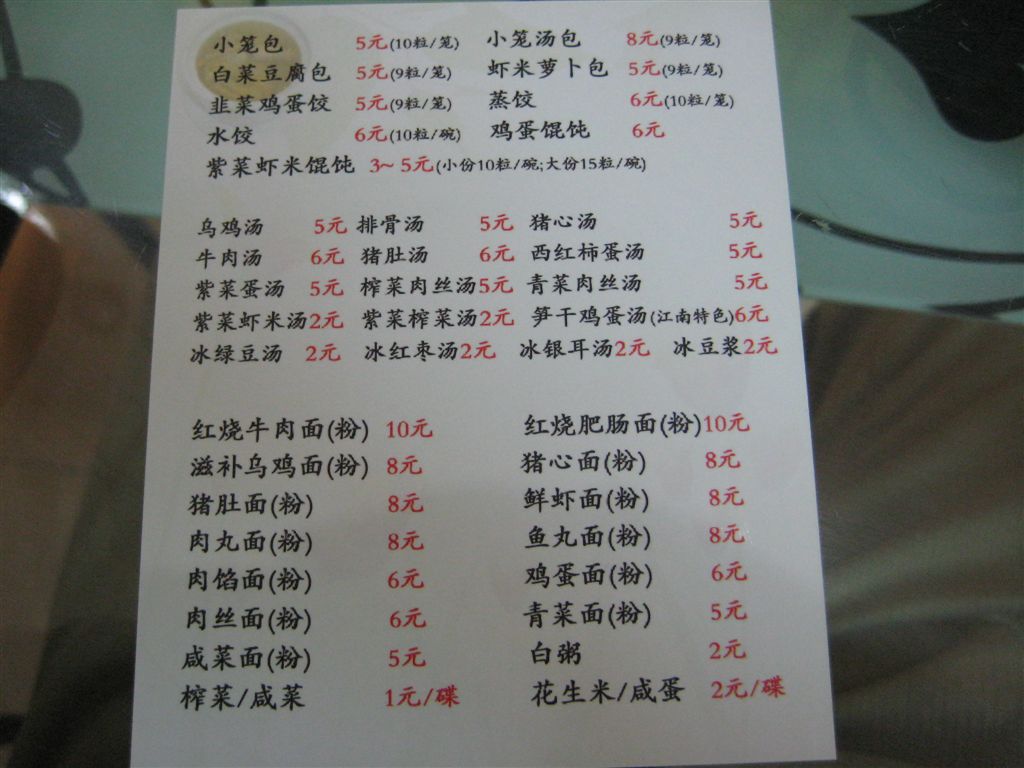 小笼包 5元(10粒/笼) 小笼汤包 8元(9粒/笼)
白菜豆腐包 5元(9粒/笼) 虾米萝卜包 5元(9粒/笼)
韭菜鸡蛋饺 5元(9粒/笼) 蒸饺 6元(10粒/笼)
水饺 6元(10粒/碗) 鸡蛋馄饨 6元
紫菜虾米馄饨 3~5元(小份10粒/碗;大份15粒/碗)
乌鸡汤 5元 排骨汤 5元 猪心汤 5元
牛肉汤 6元 猪肚汤 6元 西红柿蛋汤 5元
紫菜蛋汤 5元 榨菜肉丝汤5元 青菜肉丝汤 5元
紫菜虾米汤2元 紫菜榨菜汤2元 笋干鸡蛋汤(江南特色)6元
冰绿豆汤 2元 冰红枣汤2元 冰银耳汤2元 冰豆浆2元
红烧牛肉面(粉) 10元 红烧肥肠面(粉)10元
滋补乌鸡面(粉) 8元 猪心面(粉) 8元
猪肚面(粉) 8元 鲜虾面(粉) 8元
肉丸面(粉) 8元 鱼丸面(粉) 8元
肉馅面(粉) 6元 鸡蛋面(粉) 6元
肉丝面(粉) 6元 青菜面(粉) 5元
咸菜面(粉) 5元 白粥 2元
榨菜/咸菜 1元/碟 花生米/咸蛋 2元/碟